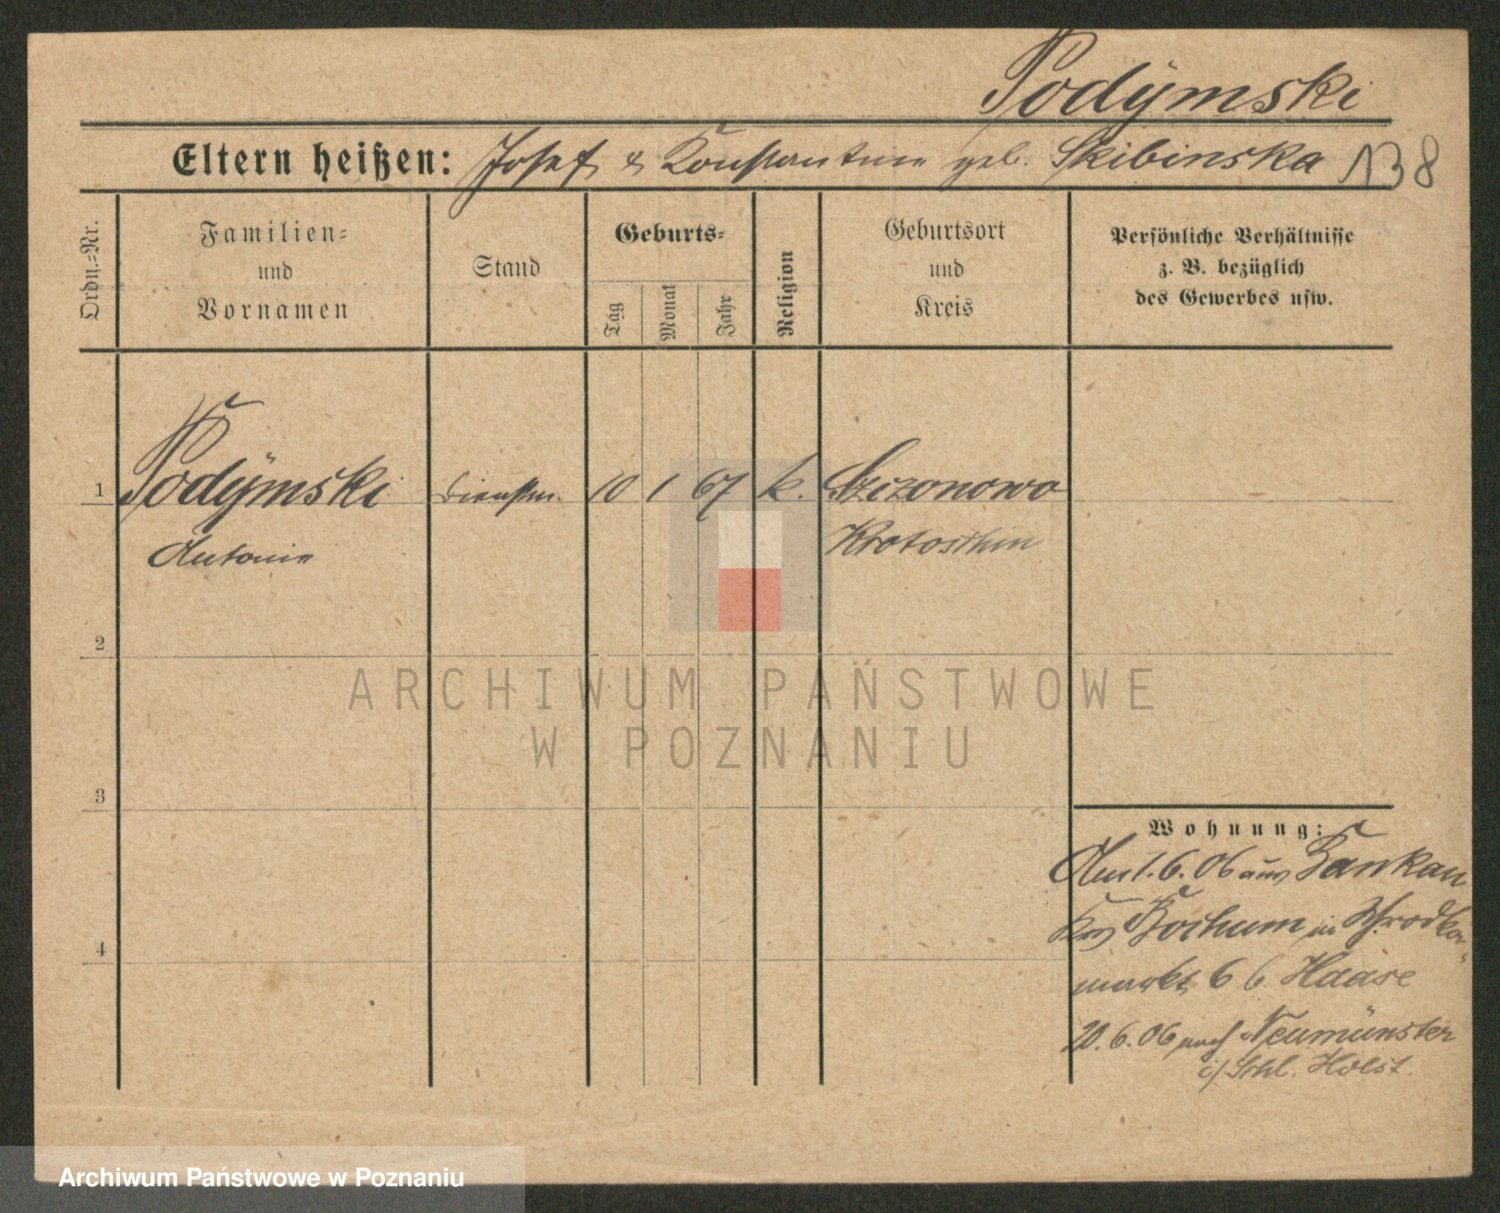 Podymski
Eltern heißen: Josef & Konstantine geb. Skibinska 138
Ordn.-Nr.
Familien-
und
Vornamen
Stand
Geburts-
Tag
Monat
Jahr
Religion
Geburtsort
und
Kreis
Persönliche Verhältnisse
z. B. bezüglich
des Gewerbes usw.
1 Podymski 10 1 67 k.
Antonie Krotoschin
2
ARCHIWUM PAŃSTWOWE
W POZNANIU
3
Wohnung:
Am 1.6.06 aus
Krs Bochum in Schrodka
markt 6 b Haase
4
20.6.06 nach Neumünster
i/ Schl. Holst.
Archiwum Państwowe w Poznaniu